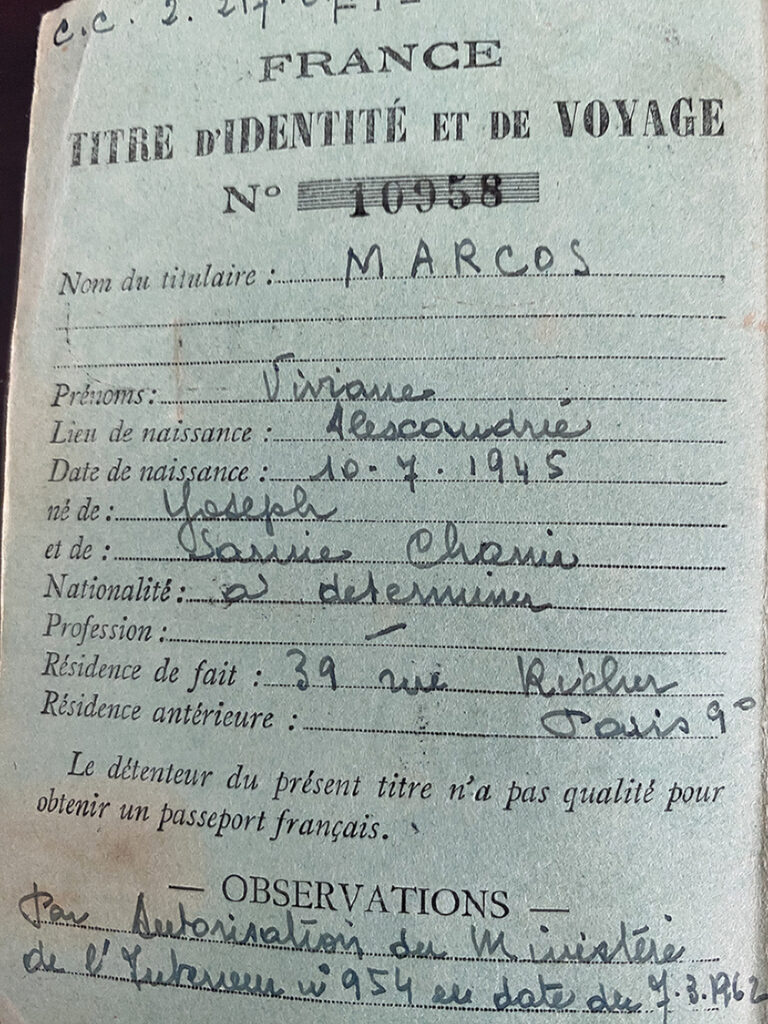 C.C. 2.
FRANCE
TITRE D'IDENTITÉ ET DE VOYAGE
N° 10958
Nom du titulaire : MARCOS
Prénoms : Viviane
Lieu de naissance : Alescandrie
Date de naissance : 10-7.1945
né de : Yoseph
et de :
Nationalité : a determiner
Profession : —
Résidence de fait : 39 rue Richer
Résidence antérieure : Paris 9°
Le détenteur du présent titre n'a pas qualité pour
obtenir un passeport français.
— OBSERVATIONS —
Par Autorisation du Ministére
de l'Interieur n° 954 en date du 7.3.1962